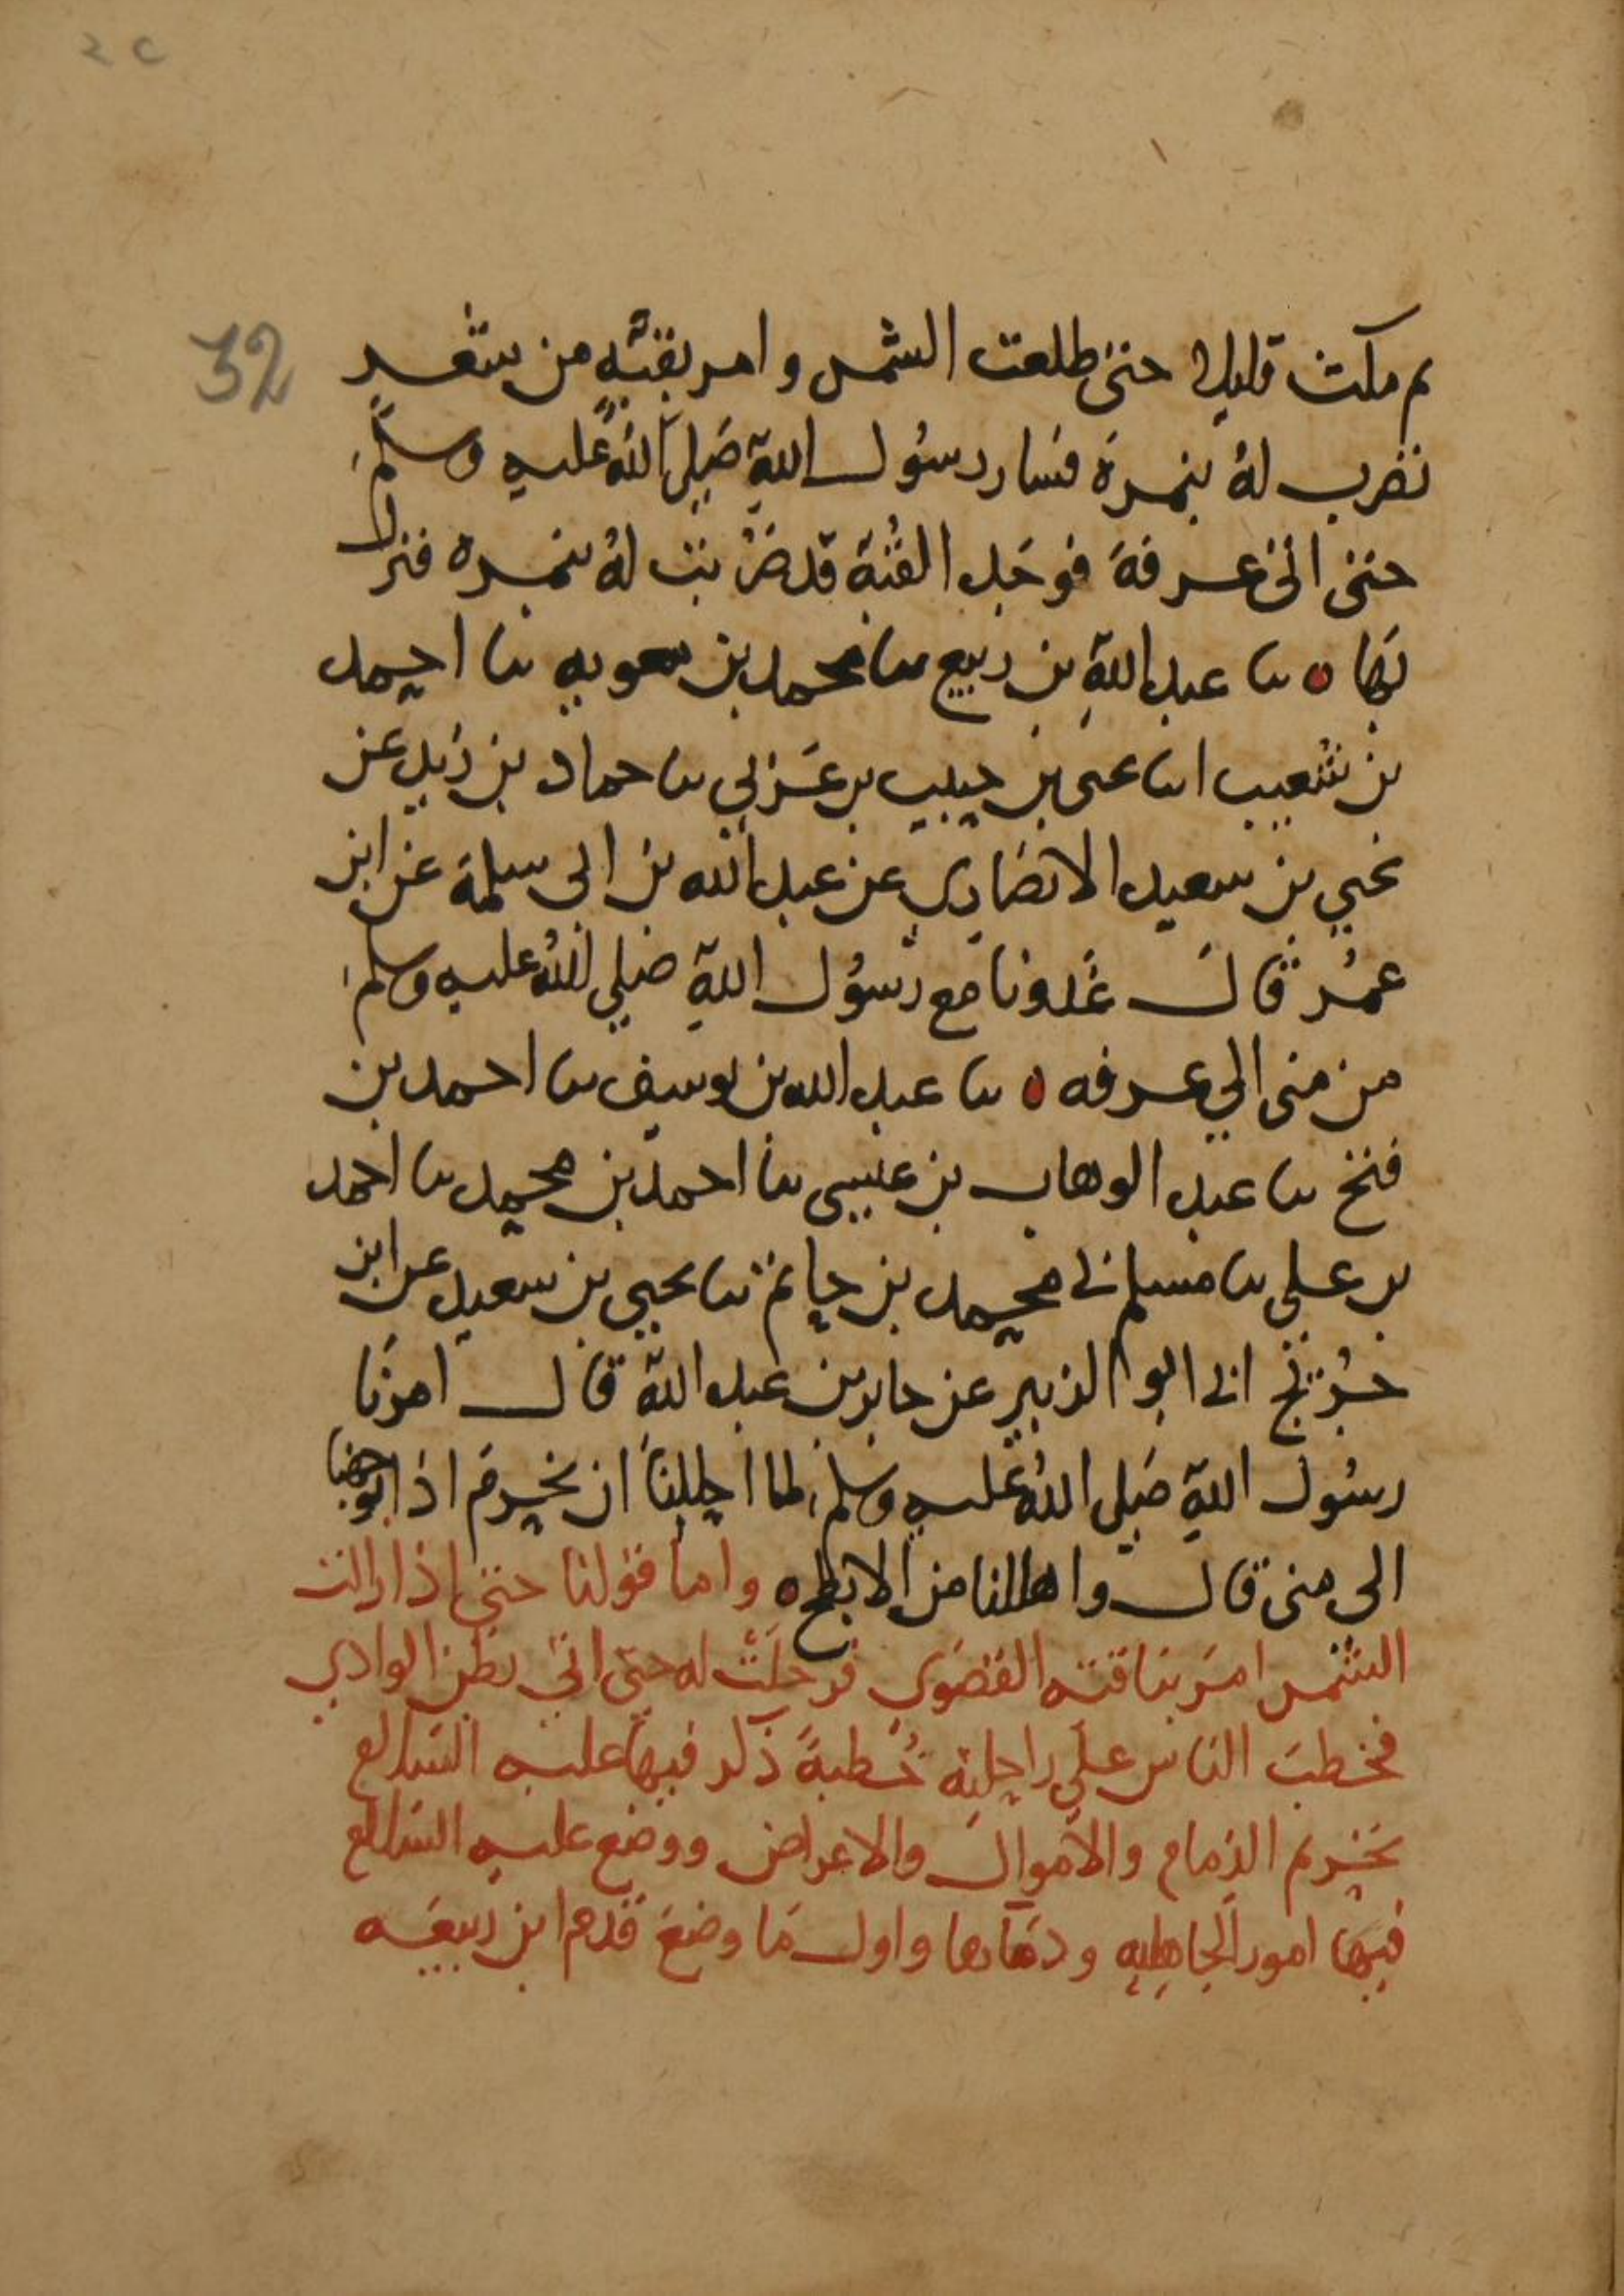 ٢٢
32
ثم مكث قليلا حتى طلعت الشمس وامر بقبة من شعر
تضرب له بنمرة فسار رسول الله صلى الله عليه وسلم
حتى اتى عرفة فوجد القبة قد ضربت له بنمره فنزل
بها ه نا عبد الله بن ربيع نا محمد بن معويه نا احمد
بن شعيب انا يحيى بن حبيب بن عربي نا حماد بن زيد عن
يحيي بن سعيد الانصاري عن عبد الله بن ابى سلمة عن ابن
عمر قال غدونا مع رسول الله صلي الله عليه وسلم
من منى الي عرفه ه نا عبد الله بن يوسف نا احمد بن
فتح نا عبد الوهاب بن عيسى نا احمد بن محمد نا احمد
بن على نا مسلم نى محمد بن حاتم نا يحيي بن سعيد عن ابن
جريج انى ابو الزبير عن جابر بن عبد الله قال امرنا
رسول الله صلى الله عليه وسلم لما احللنا ان نحرم اذا توجهنا
الى منى قال واهللنا من الابطح ه واما قولنا حتى اذا زالت
الشمس امر بناقته القصوى فرحلت له حتى اتى بطن الوادي
فخطب الناس على راحلته خطبة ذكر فيها عليه السلام
تحريم الدماء والاموال والاعراض ووضع عليه السلام
فيها امور الجاهلية ودماءها واول ما وضع قدم ابن ربيعه